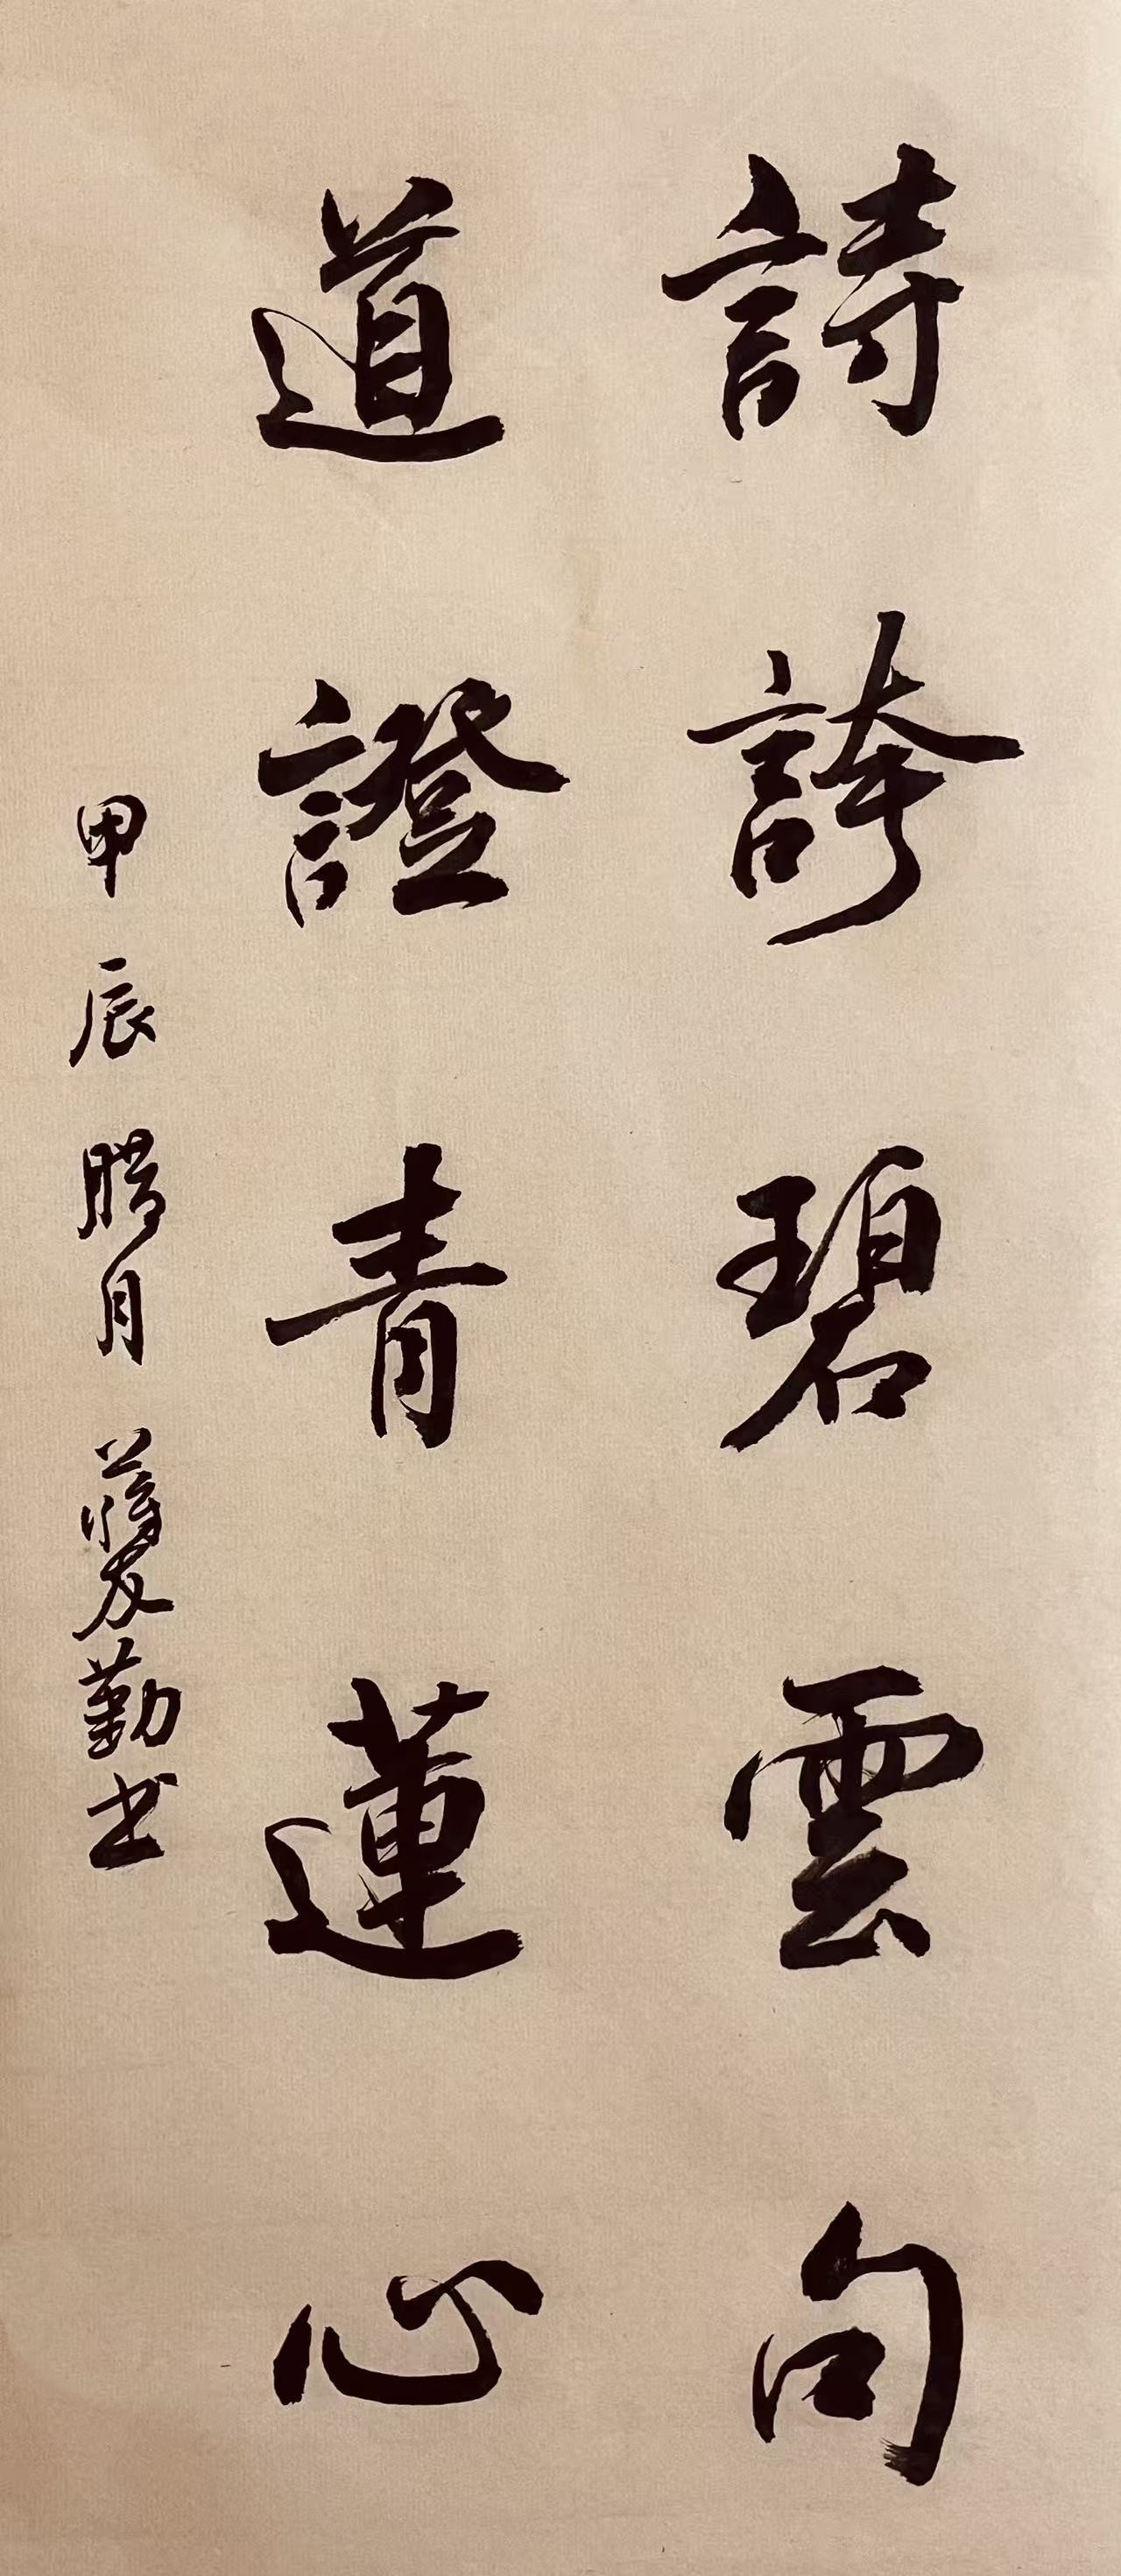 詩誇碧雲句
道證青蓮心
甲辰腊月蔣友勤书